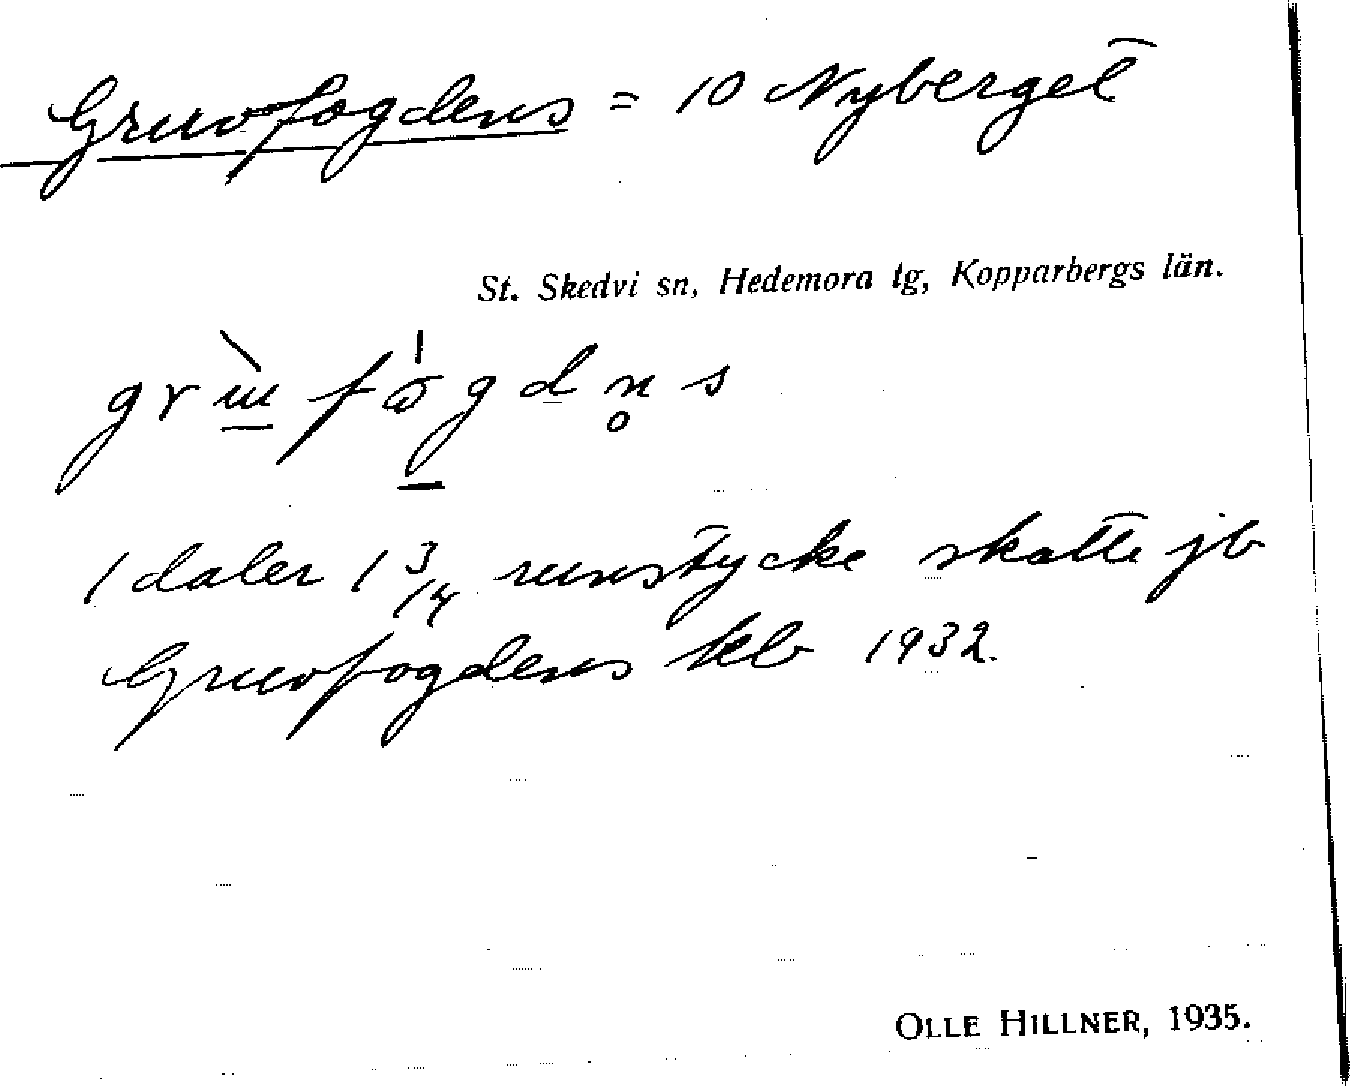 Gruvfogdens = 10 Nyberget
St. Skedvi sn, Hedemora tg, Kopparbergs län.
1 daler 1 3/14 runstycke skatte jb
Gruvfogdens kb 1932.
OLLE HILLNER, 1935.